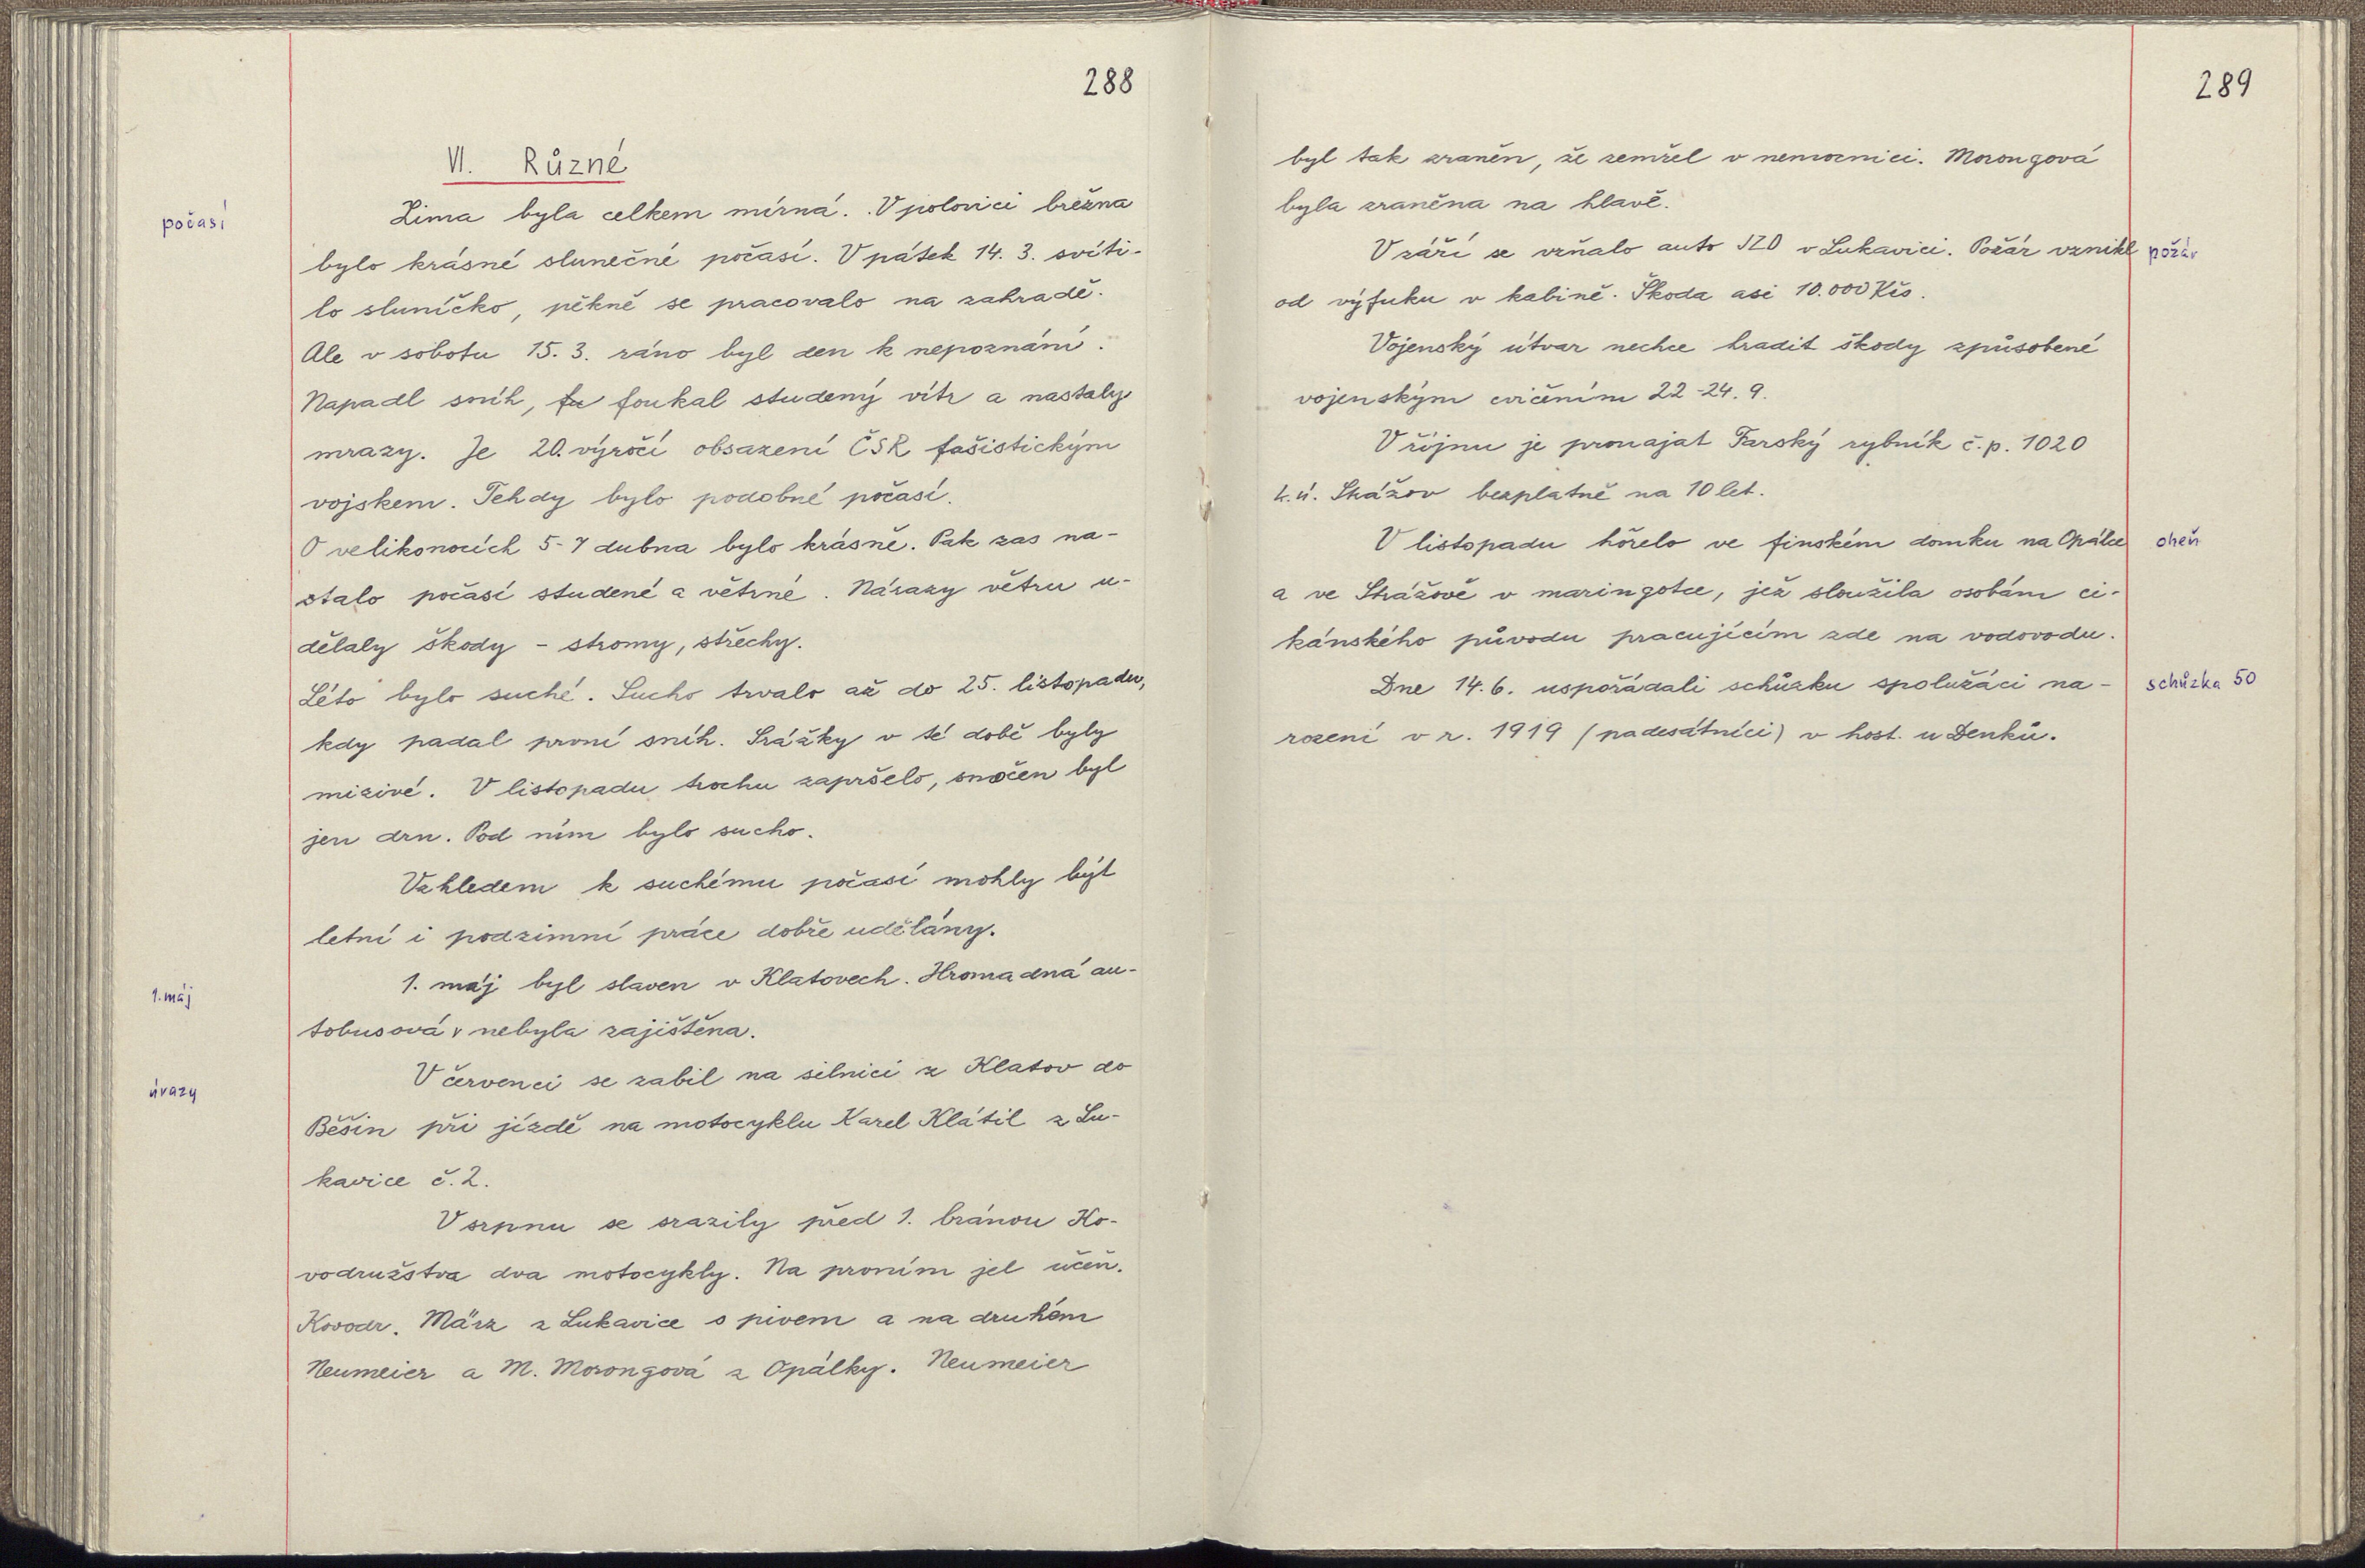 288
VI. Různé
počasí
Zima byla celkem mírná. V polovici března
bylo krásné slunečné počasí. V pátek 14. 3. svíti-
lo sluníčko, pěkně se pracovalo na zahradě.
Ale v sobotu 15. 3. ráno byl den k nepoznání.
Napadl sníh, fu foukal studený vítr a nastaly
mrazy. Je 20. výročí obsazení ČSR fašistickým
vojskem. Tehdy bylo podobné počasí.
O velikonocích 5-7 dubna bylo krásně. Pak zas na-
stalo počasí studené a větrné. Nárazy větru u-
dělaly škody - stromy, střechy.
Léto bylo suché. Sucho trvalo až do 25. listopadu,
kdy padal první sníh. Srážky v té době byly
mizivé. V listopadu trochu zapršelo, smočen byl
jen drn. Pod ním bylo sucho.
Vzhledem k suchému počasí mohly být
letní i podzimní práce dobře udělány.
1. máj
1. máj byl slaven v Klatovech. Hromadná au-
tobusová v nebyla zajištěna.
úrazy
V červenci se zabil na silnici z Klatov do
Běšin při jízdě na motocyklu Karel Klátil z Lu-
kavice č. 2.
V srpnu se srazily před 1. bránou Ko-
vodružstva dva motocykly. Na prvním jel učeň.
Kovodr. März z Lukavice s pivem a na druhém
Neumeier a M. Morongová z Opálky. Neumeier
289
byl tak zraněn, že zemřel v nemocnici. Morongová
byla zraněna na hlavě.
V září se vzňalo auto JZD v Lukavici. Požár vznikl
požár
od výfuku v kabině. Škoda asi 10.000 Kčs.
Vojenský útvar nechce hradit škody způsobené
vojenským cvičením 22-24. 9.
V říjnu je pronajat Farský rybník č. p. 1020
k. ú. Strážov bezplatně na 10 let.
V listopadu hořelo ve finském domku na Opálce
oheň
a ve Strážově v maringotce, jež sloužila osobám ci-
kánského původu pracujícím zde na vodovodu.
Dne 14. 6. uspořádali schůzku spolužáci na-
schůzka 50
rození v r. 1919 (padesátníci) v host. u Denků.